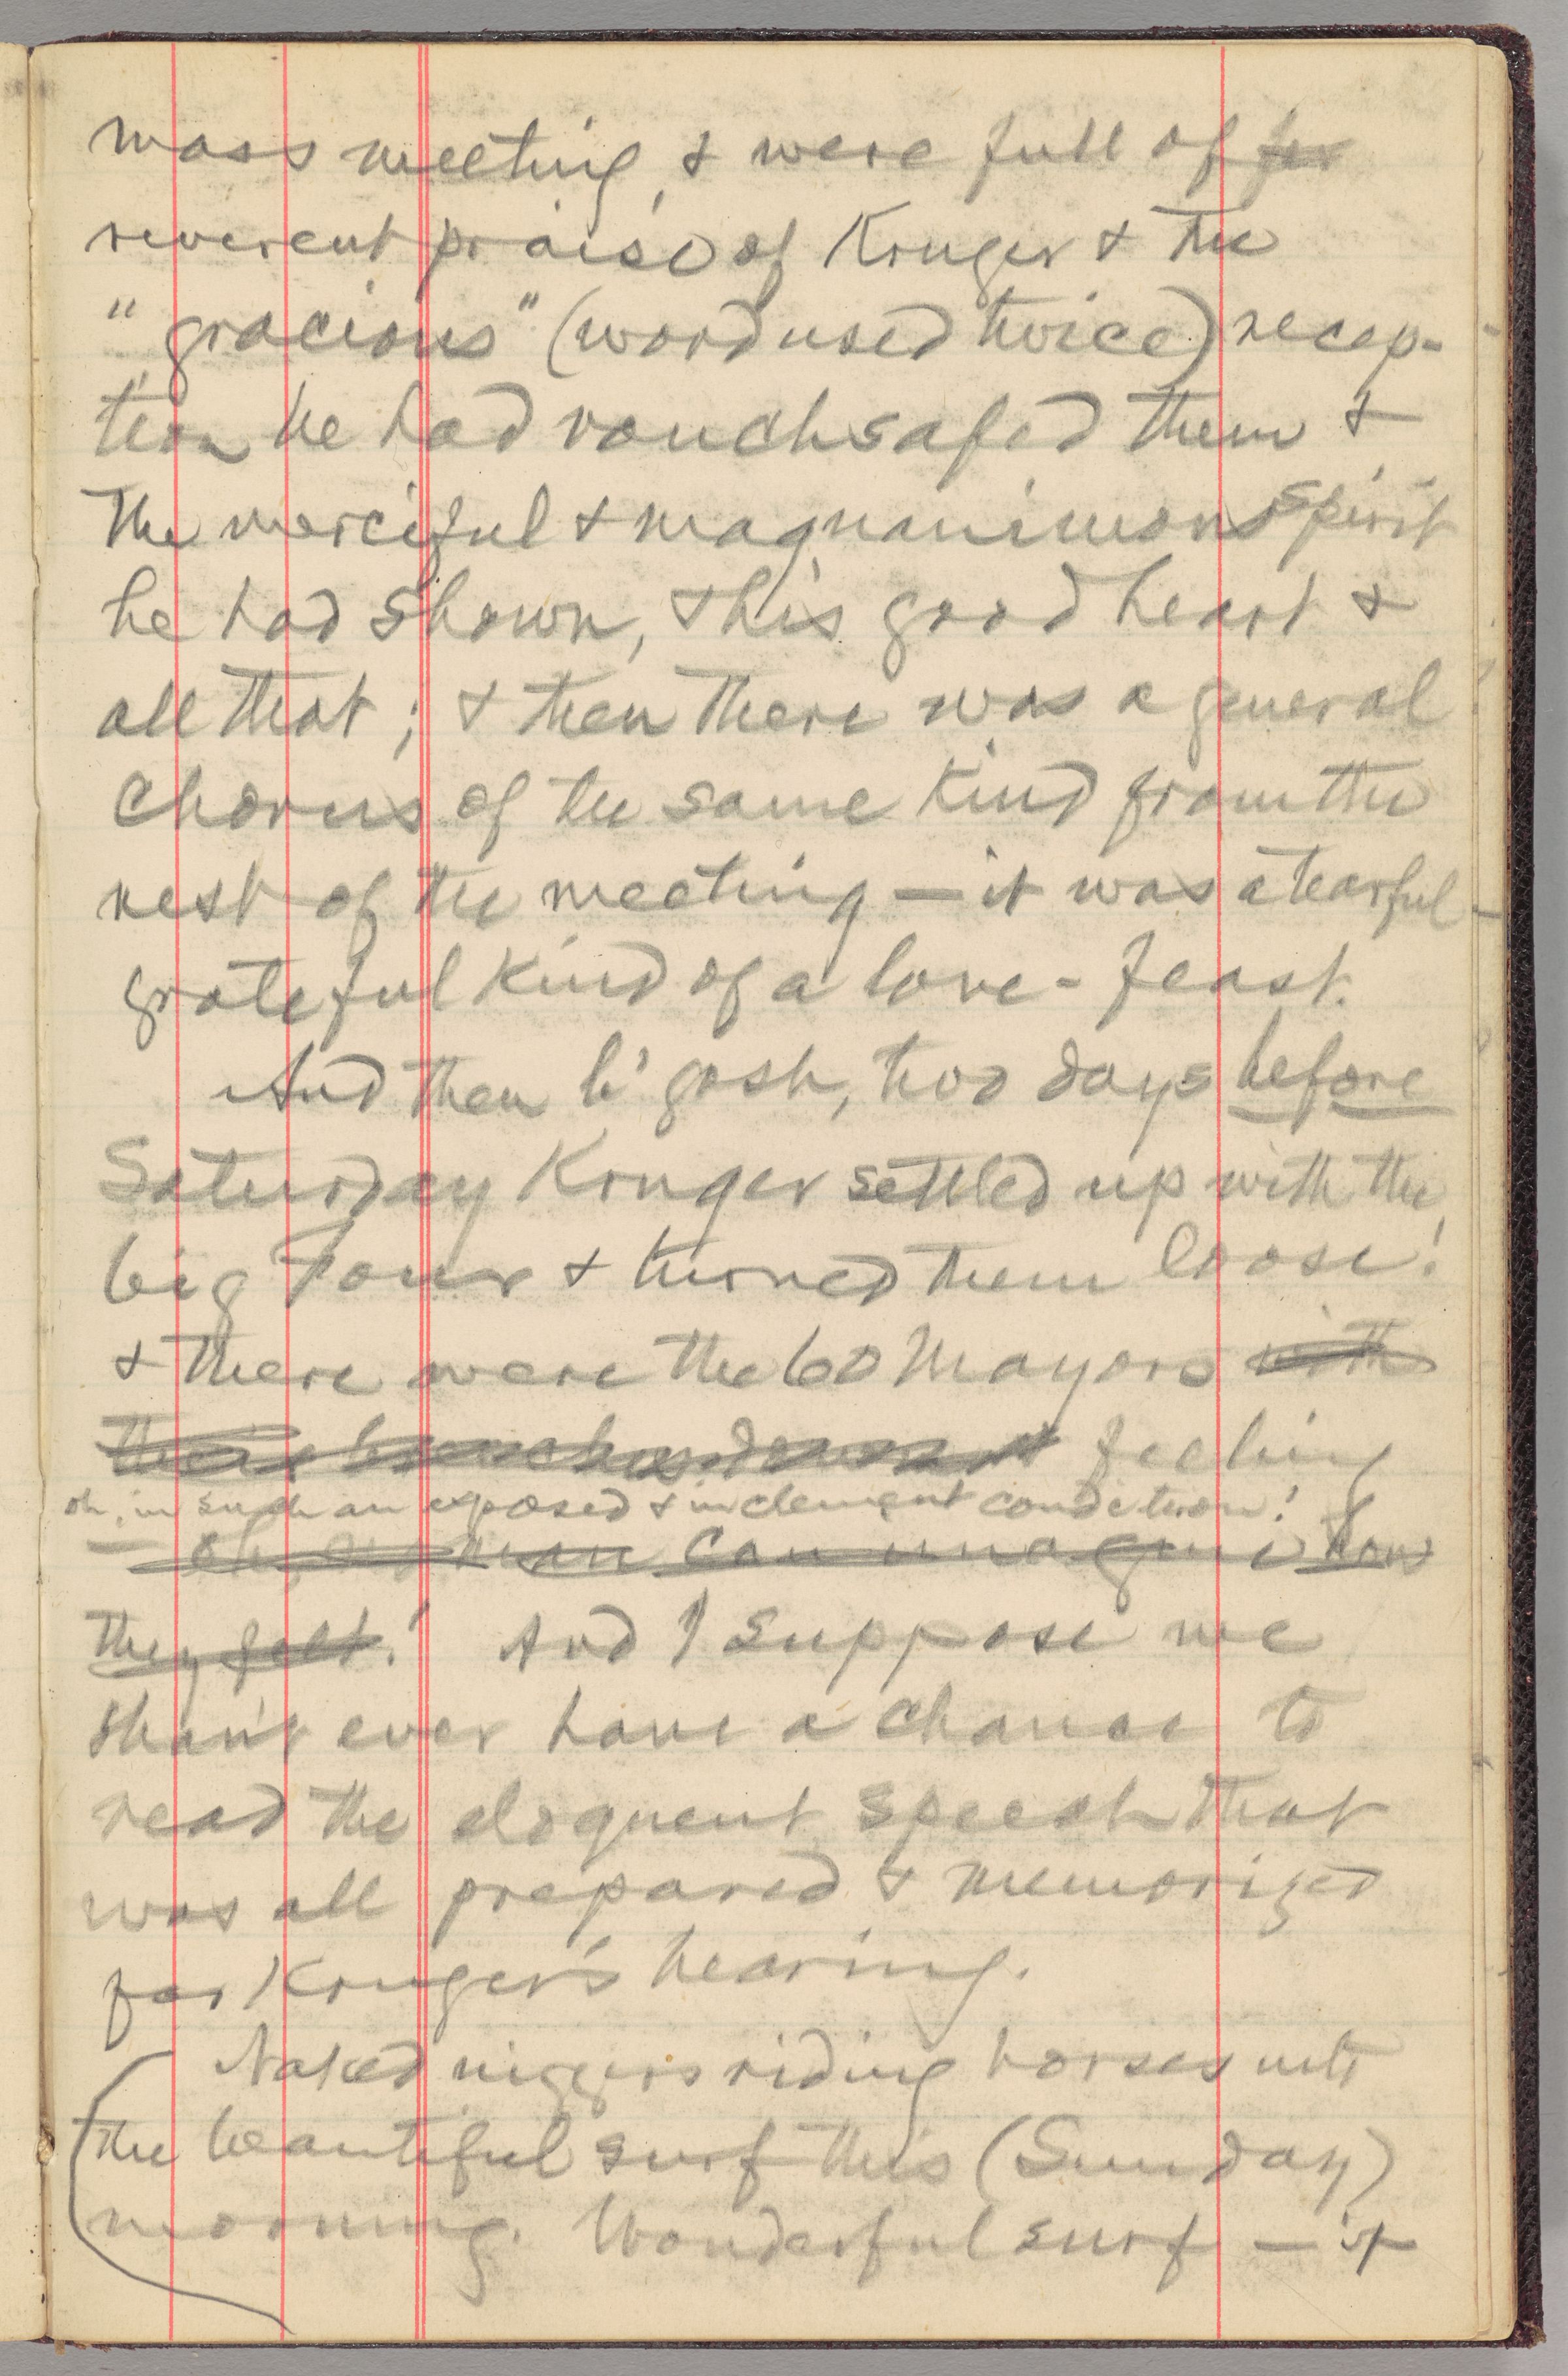 mass meeting, & were full of for
reverent praise of Kruger & the
"gracious" (word used twice) recep-
tion he had vouchsafed them &
the merciful & magnanimous spirit
he had shown, & his good heart &
all that; & then there was a general
chorus of the same kind from the
rest of the meeting — it was a tearful-
grateful kind of a love-feast.
And then b'gosh, two days before
Saturday Kruger settled up with the
big Four & turned them loose!
& there were the 60 Mayors with
their feeling
oh, in such an exposed & inclement condition!
— oh, no man can imagine how
they felt! And I suppose we
shan't ever have a chance to
read the eloquent speech that
was all prepared & memorized
for Kruger's hearing.
Naked niggers riding horses into
the beautiful surf this (Sunday)
morning. Wonderful surf — it